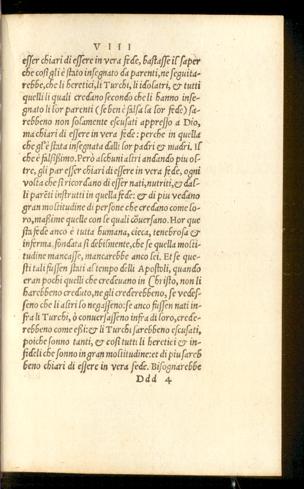 VIII
esser chiari di essere in vera fede, bastasse il saper
che così gli è stato insegnato da parenti, ne seguita-
rebbe, che li heretici, li Turchi, li idolatri, & tutti
quelli li quali credano secondo che li hanno inse-
gnato li lor parenti (se ben è falsa la lor fede) sa-
rebbeno non solamente escusati appresso a Dio,
ma chiari di essere in vera fede: perche in quella
che gl'è stata insegnata dalli lor padri & madri. Il
che è falsißimo. Però alchuni altri andando piu ol-
tre, gli par esser chiari di essere in vera fede, ogni
volta che si ricordano di esser nati, nutriti, & dal-
li parēti instrutti in quella fede: & di piu vedano
gran moltitudine di persone che credano come lo-
ro, maßime quelle con le quali cōuersano. Hor que
sta fede anco è tutta humana, cieca, tenebrosa &
inferma. fondata si debilmente, che se quella molti-
tudine mancasse, mancarebbe anco lei. Et se que-
sti tali fussen stati al tempo delli Apostoli, quando
eran pochi quelli che credeuano in Christo, non li
harebbeno creduto, ne gli crederebbeno, se vedes-
seno che li altri lo negasseno: se anco fussen nati in-
fra li Turchi, ò conuersasseno infra di loro, crede-
rebbeno come eßi: & li Turchi sarebbeno escusati,
poiche sonno tanti, & così tutti li heretici & in-
fideli che sonno in gran moltitudine: et di piu sareb
beno chiari di essere in vera fede. Bisognarebbe
Ddd 4